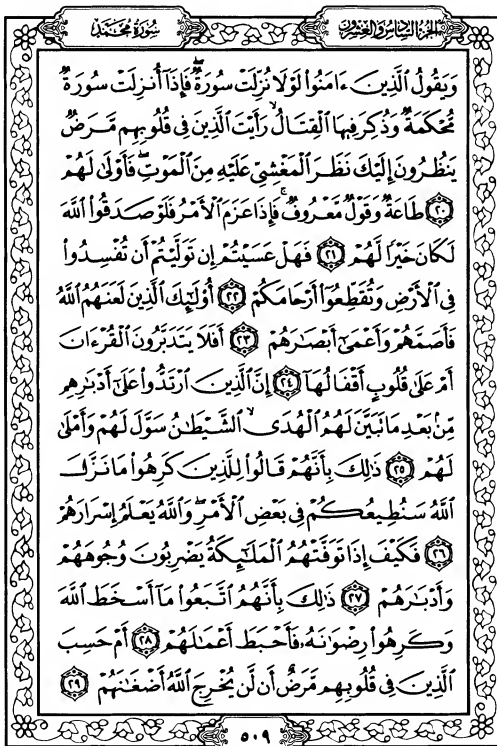 سُورَةُ مُحَمَّد
الجُزْءُ السَّادِسُ وَالعِشْرُونَ
وَيَقُولُ ٱلَّذِينَ ءَامَنُوا۟ لَوْلَا نُزِّلَتْ سُورَةٌ ۖ فَإِذَآ أُنزِلَتْ سُورَةٌ
مُّحْكَمَةٌ وَذُكِرَ فِيهَا ٱلْقِتَالُ ۙ رَأَيْتَ ٱلَّذِينَ فِى قُلُوبِهِم مَّرَضٌ
يَنظُرُونَ إِلَيْكَ نَظَرَ ٱلْمَغْشِىِّ عَلَيْهِ مِنَ ٱلْمَوْتِ ۖ فَأَوْلَىٰ لَهُمْ
٢٠ طَاعَةٌ وَقَوْلٌ مَّعْرُوفٌ ۚ فَإِذَا عَزَمَ ٱلْأَمْرُ فَلَوْ صَدَقُوا۟ ٱللَّهَ
لَكَانَ خَيْرًا لَّهُمْ ٢١ فَهَلْ عَسَيْتُمْ إِن تَوَلَّيْتُمْ أَن تُفْسِدُوا۟
فِى ٱلْأَرْضِ وَتُقَطِّعُوٓا۟ أَرْحَامَكُمْ ٢٢ أُو۟لَـٰٓئِكَ ٱلَّذِينَ لَعَنَهُمُ ٱللَّهُ
فَأَصَمَّهُمْ وَأَعْمَىٰٓ أَبْصَـٰرَهُمْ ٢٣ أَفَلَا يَتَدَبَّرُونَ ٱلْقُرْءَانَ
أَمْ عَلَىٰ قُلُوبٍ أَقْفَالُهَآ ٢٤ إِنَّ ٱلَّذِينَ ٱرْتَدُّوا۟ عَلَىٰٓ أَدْبَـٰرِهِم
مِّنۢ بَعْدِ مَا تَبَيَّنَ لَهُمُ ٱلْهُدَى ۙ ٱلشَّيْطَـٰنُ سَوَّلَ لَهُمْ وَأَمْلَىٰ
لَهُمْ ٢٥ ذَٰلِكَ بِأَنَّهُمْ قَالُوا۟ لِلَّذِينَ كَرِهُوا۟ مَا نَزَّلَ
ٱللَّهُ سَنُطِيعُكُمْ فِى بَعْضِ ٱلْأَمْرِ ۖ وَٱللَّهُ يَعْلَمُ إِسْرَارَهُمْ
٢٦ فَكَيْفَ إِذَا تَوَفَّتْهُمُ ٱلْمَلَـٰٓئِكَةُ يَضْرِبُونَ وُجُوهَهُمْ
وَأَدْبَـٰرَهُمْ ٢٧ ذَٰلِكَ بِأَنَّهُمُ ٱتَّبَعُوا۟ مَآ أَسْخَطَ ٱللَّهَ
وَكَرِهُوا۟ رِضْوَٰنَهُۥ فَأَحْبَطَ أَعْمَـٰلَهُمْ ٢٨ أَمْ حَسِبَ
ٱلَّذِينَ فِى قُلُوبِهِم مَّرَضٌ أَن لَّن يُخْرِجَ ٱللَّهُ أَضْغَـٰنَهُمْ ٢٩
٥٠٩